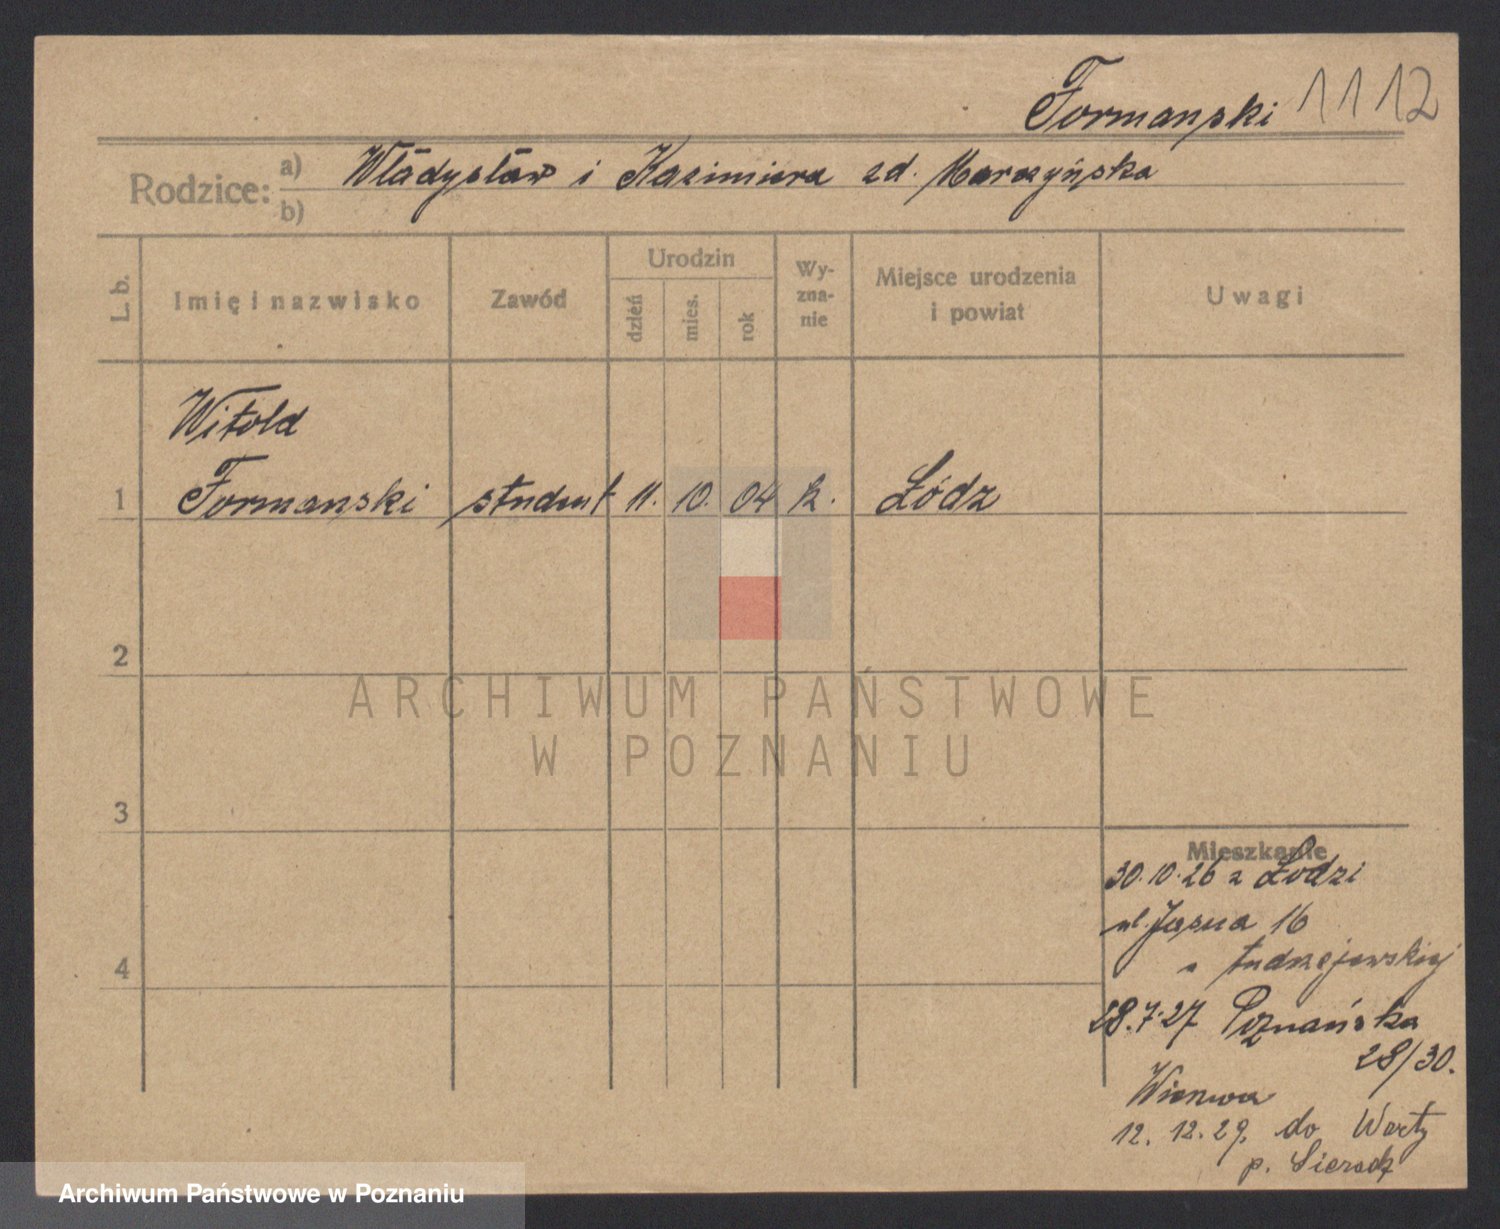 Formanski 1112
Rodzice: a) Władysław i Kazimiera zd.
b)
L. b. Imię i nazwisko Zawód Urodzin dzień mies. rok Wy-zna-nie Miejsce urodzenia i powiat Uwagi
Witold
1 Formanski student 11. 10. 04 k. Łódz
2
ARCHIWUM PAŃSTWOWE
W POZNANIU
3
Mieszkanie
30.10.26 z Łodzi
ul Jasna 16
4
28.7.27 Poznańska
28/30.
12. 12.29. do Warty
p. Sieradz
Archiwum Państwowe w Poznaniu